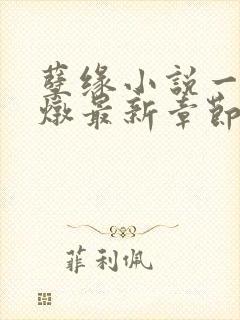 孽缘小説一
燉最新章節
菲利佩